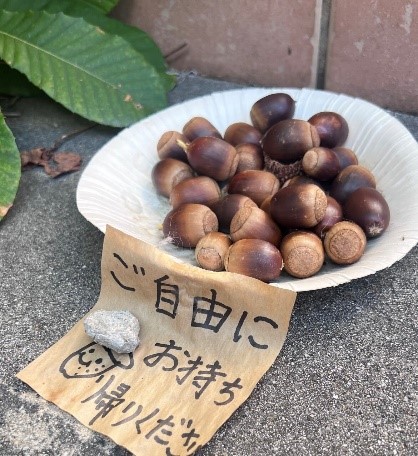 ご自由に
お持ち
帰りくださ